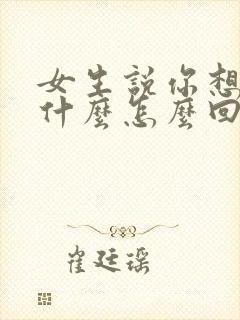 女生說你想
什麼怎麼回
崔廷瑶